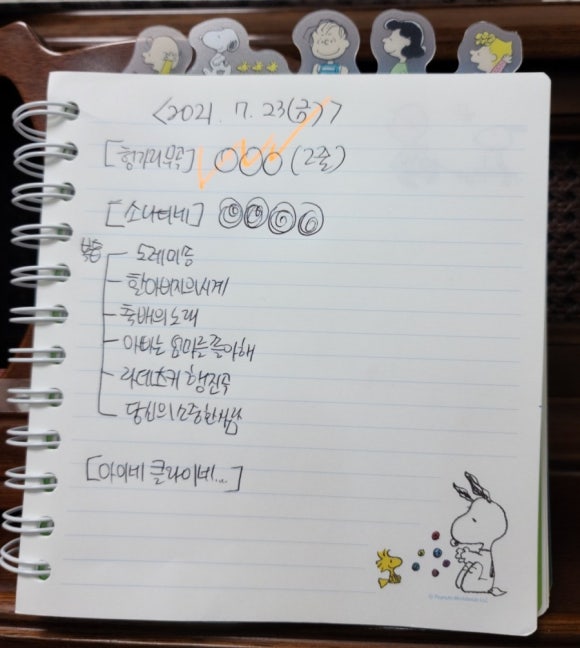 <2021. 7. 23(금)>
[헝가리무곡] ○○○ (2줄)
[소나티네] ◎◎◎◎
복습
도레미송
할아버지의시계
축배의노래
아빠는 엄마를 좋아해
라데츠키 행진곡
당신의소중한사람
[아이네 클라이네...]